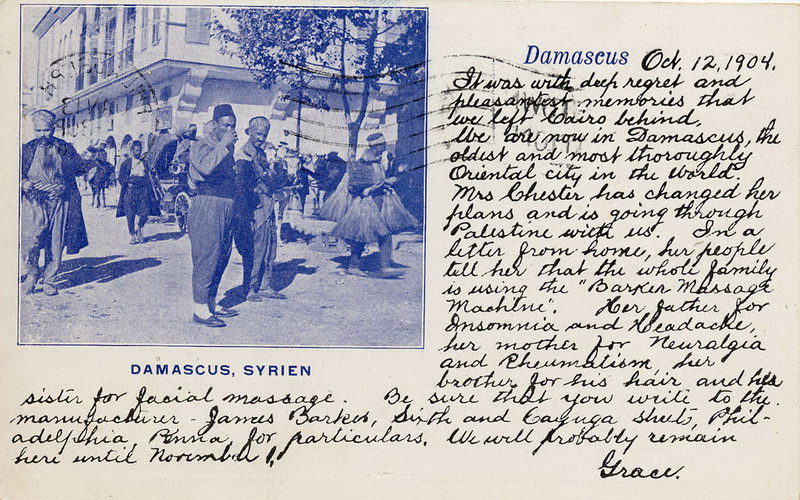 Damascus Oct. 12, 1904.
It was with deep regret and
pleasantest memories that
we left Cairo behind.
We are now in Damascus, the
oldest and most thoroughly
Oriental city in the World.
Mrs Chester has changed her
plans and is going through
Palestine with us. In a
letter from home, her people
tell her that the whole family
is using the "Barker Massage
Machine". Her father for
Insomnia and Headache,
her mother for Neuralgia
and Rheumatism, her
brother for his hair, and her
DAMASCUS, SYRIEN
sister for facial massage. Be sure that you write to the
manufacturer - James Barker, Sixth and Cayuga Streets, Phil-
adelphia, Penna, for particulars. We will probably remain
here until November 1.
Grace.